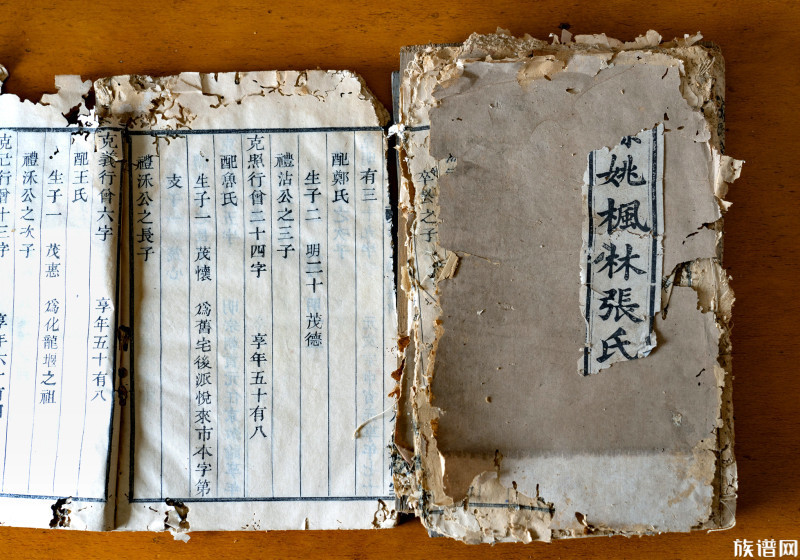 姚楓林張氏
公之子
有三
配鄭氏
生子二 明二十 茂德
禮沾公之三子
克照行曾二十四字 享年五十有八
配魯氏
生子一 茂懷 爲舊宅後派悅來市本字第
支
禮沃公之長子
克義行曾六字 享年五十有八
配王氏
生子一 茂惠 爲化龍堰之祖
禮沃公之次子
行曾十三字 享年六十有四
族谱网